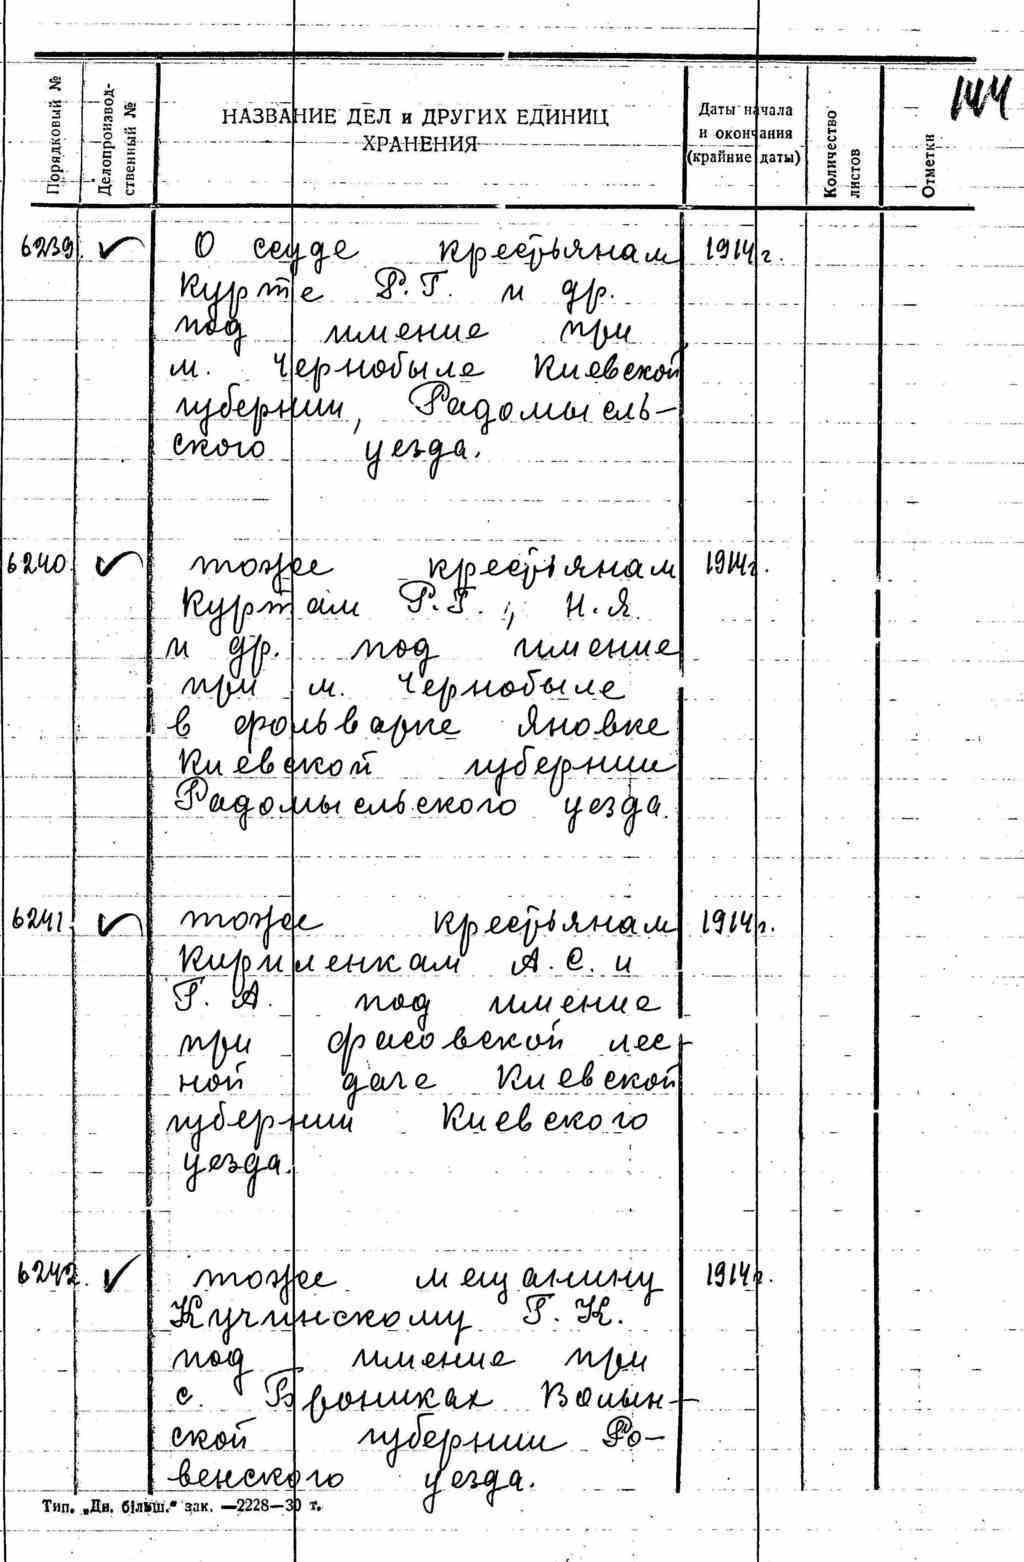 144
Порядковый №
Делопроизвод-
ственный №
НАЗВАНИЕ ДЕЛ и ДРУГИХ ЕДИНИЦ
ХРАНЕНИЯ
Даты начала
и окончания
(крайние даты)
Количество
листов
Отметки
6239. ✓ О ссуде крестьянам 1914 г.
Курте Р.Г. и др.
под имение при
м. Чернобыле Киевской
губернии, Радомысль-
ского уезда.
6240. ✓ тоже крестьянам 1914 г.
Куртам Р.Г., Н.Я.
и др. под имение
при м. Чернобыле
в фольварке Яновке
Киевской губернии
Радомысльского уезда.
6241. ✓ тоже крестьянам 1914 г.
Кириленкам А.С. и
Г.А. под имение
при фасовской лес-
ной даче Киевской
губернии Киевского
уезда.
6242. ✓ тоже мещанину 1914 г.
Кучинскому Г.К.
под имение при
с. Брониках Волын-
ской губернии Ро-
венского уезда.
Тип. „Дн. більш.“ зак. —2228—30 т.